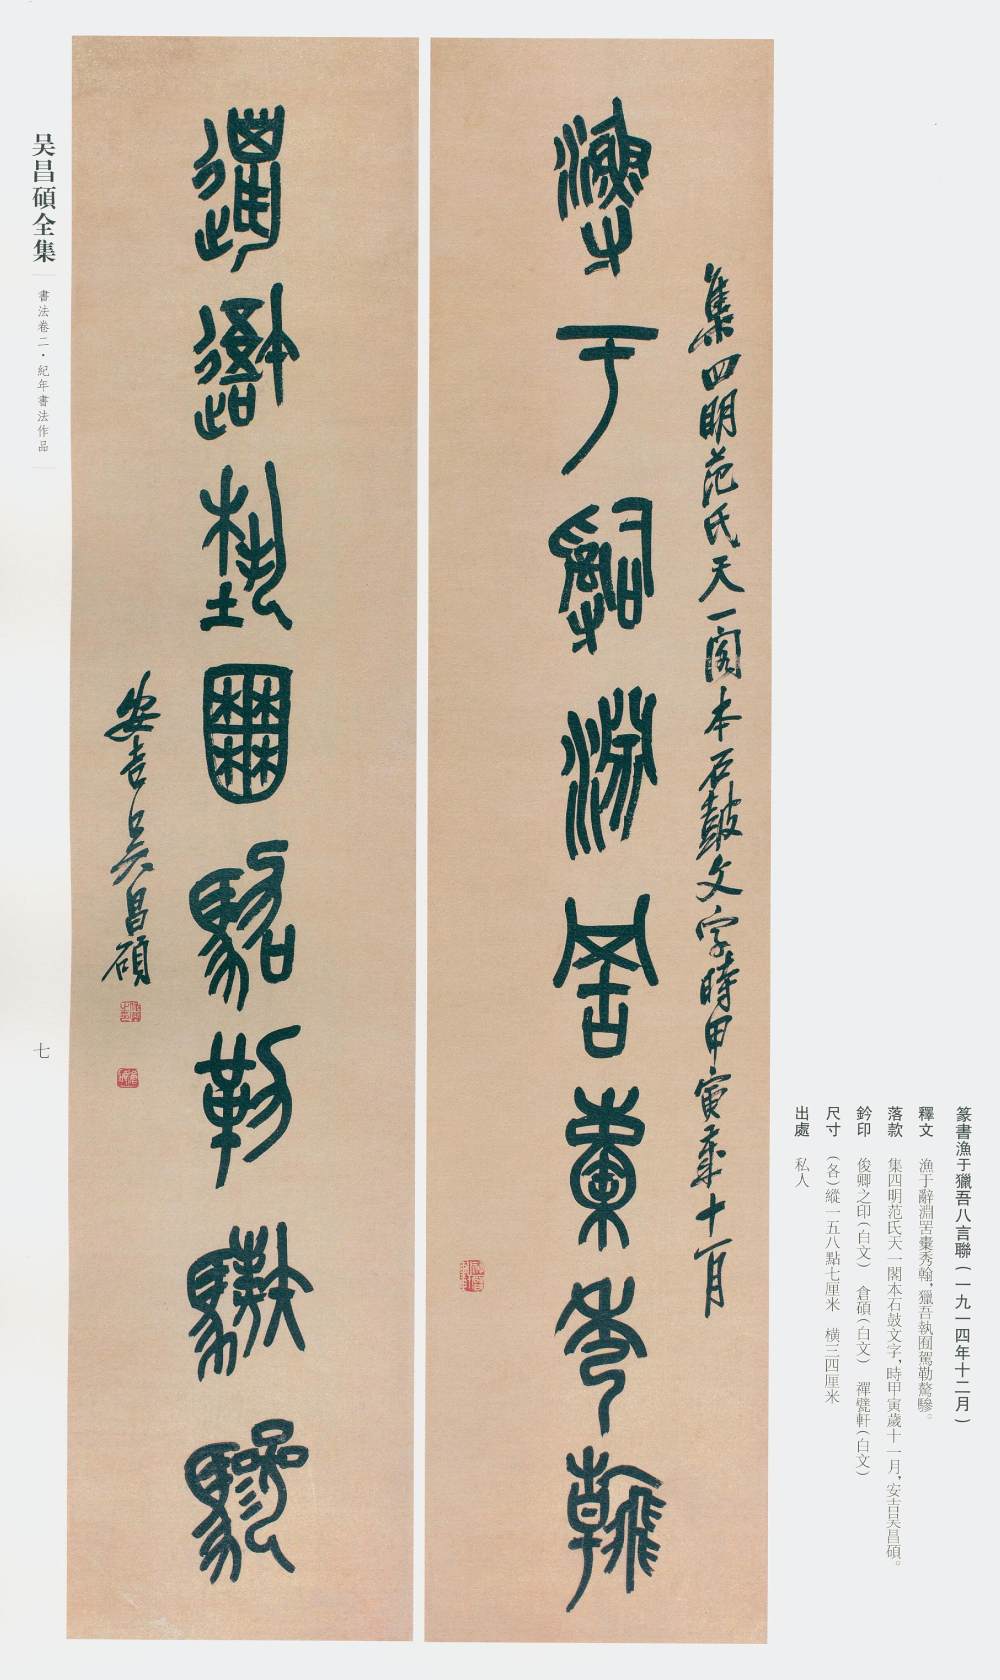 篆書漁于獵吾八言聯（一九一四年十二月）
釋文　漁于辭淵罟橐秀翰，獵吾執囿駕勒驁驂。
落款　集四明范氏天一閣本石鼓文字，時甲寅歲十一月，安吉吴昌碩。
鈐印　俊卿之印（白文）　倉碩（白文）　禪甓軒（白文）
尺寸　（各）縱一五八點七厘米　橫三四厘米
出處　私人
集四明范氏天一閣本石鼓文字時甲寅歲十一月
漁于辭淵罟橐秀翰
獵吾執囿駕勒驁驂
安吉吴昌碩
吴昌碩全集
書法卷二・紀年書法作品
七